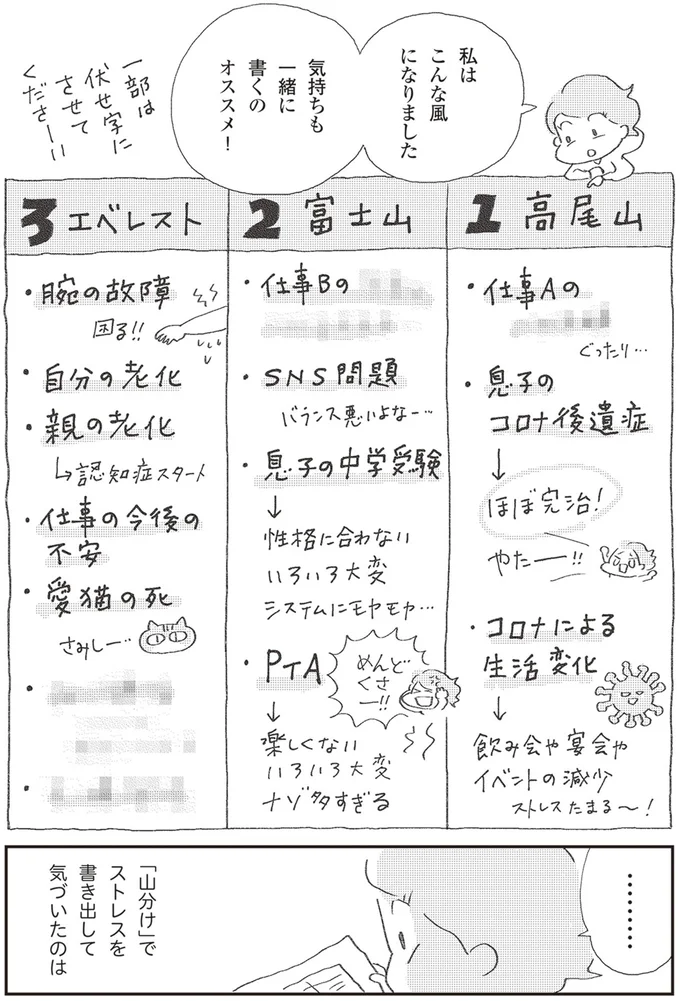 私は
こんな風
になりました
気持ちも
一緒に
書くの
オススメ！
一部は
伏せ字に
させて
くださーい
1 高尾山
・仕事Aの
ぐったり…
・息子の
コロナ後遺症
↓
ほぼ完治!
やたー――!!
・コロナによる
生活変化
↓
飲み会や宴会や
イベントの減少
ストレスたまる〜!
2 富士山
・仕事Bの
・SNS問題
バランス悪いよなー…
・息子の中学受験
↓
性格に合わない
いろいろ大変
システムにモヤモヤ…
・PTA
めんど
くさ
ー!!
↓
楽しくない
いろいろ大変
ナゾ多すぎる
3 エベレスト
・腕の故障
困る!!
・自分の老化
・親の老化
↳認知症スタート
・仕事の今後の
不安
・愛猫の死
さみしー…
………
「山分け」で
ストレスを
書き出して
気づいたのは